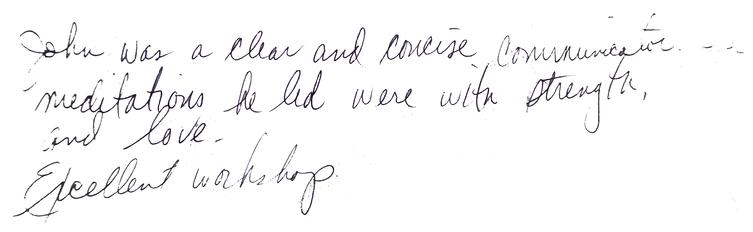 John was a clear and concise communicator . - - -
meditations he led were with strength,
and love.
Excellent workshop